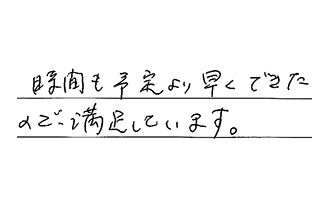 時間も予定より早くできた
ので満足しています。